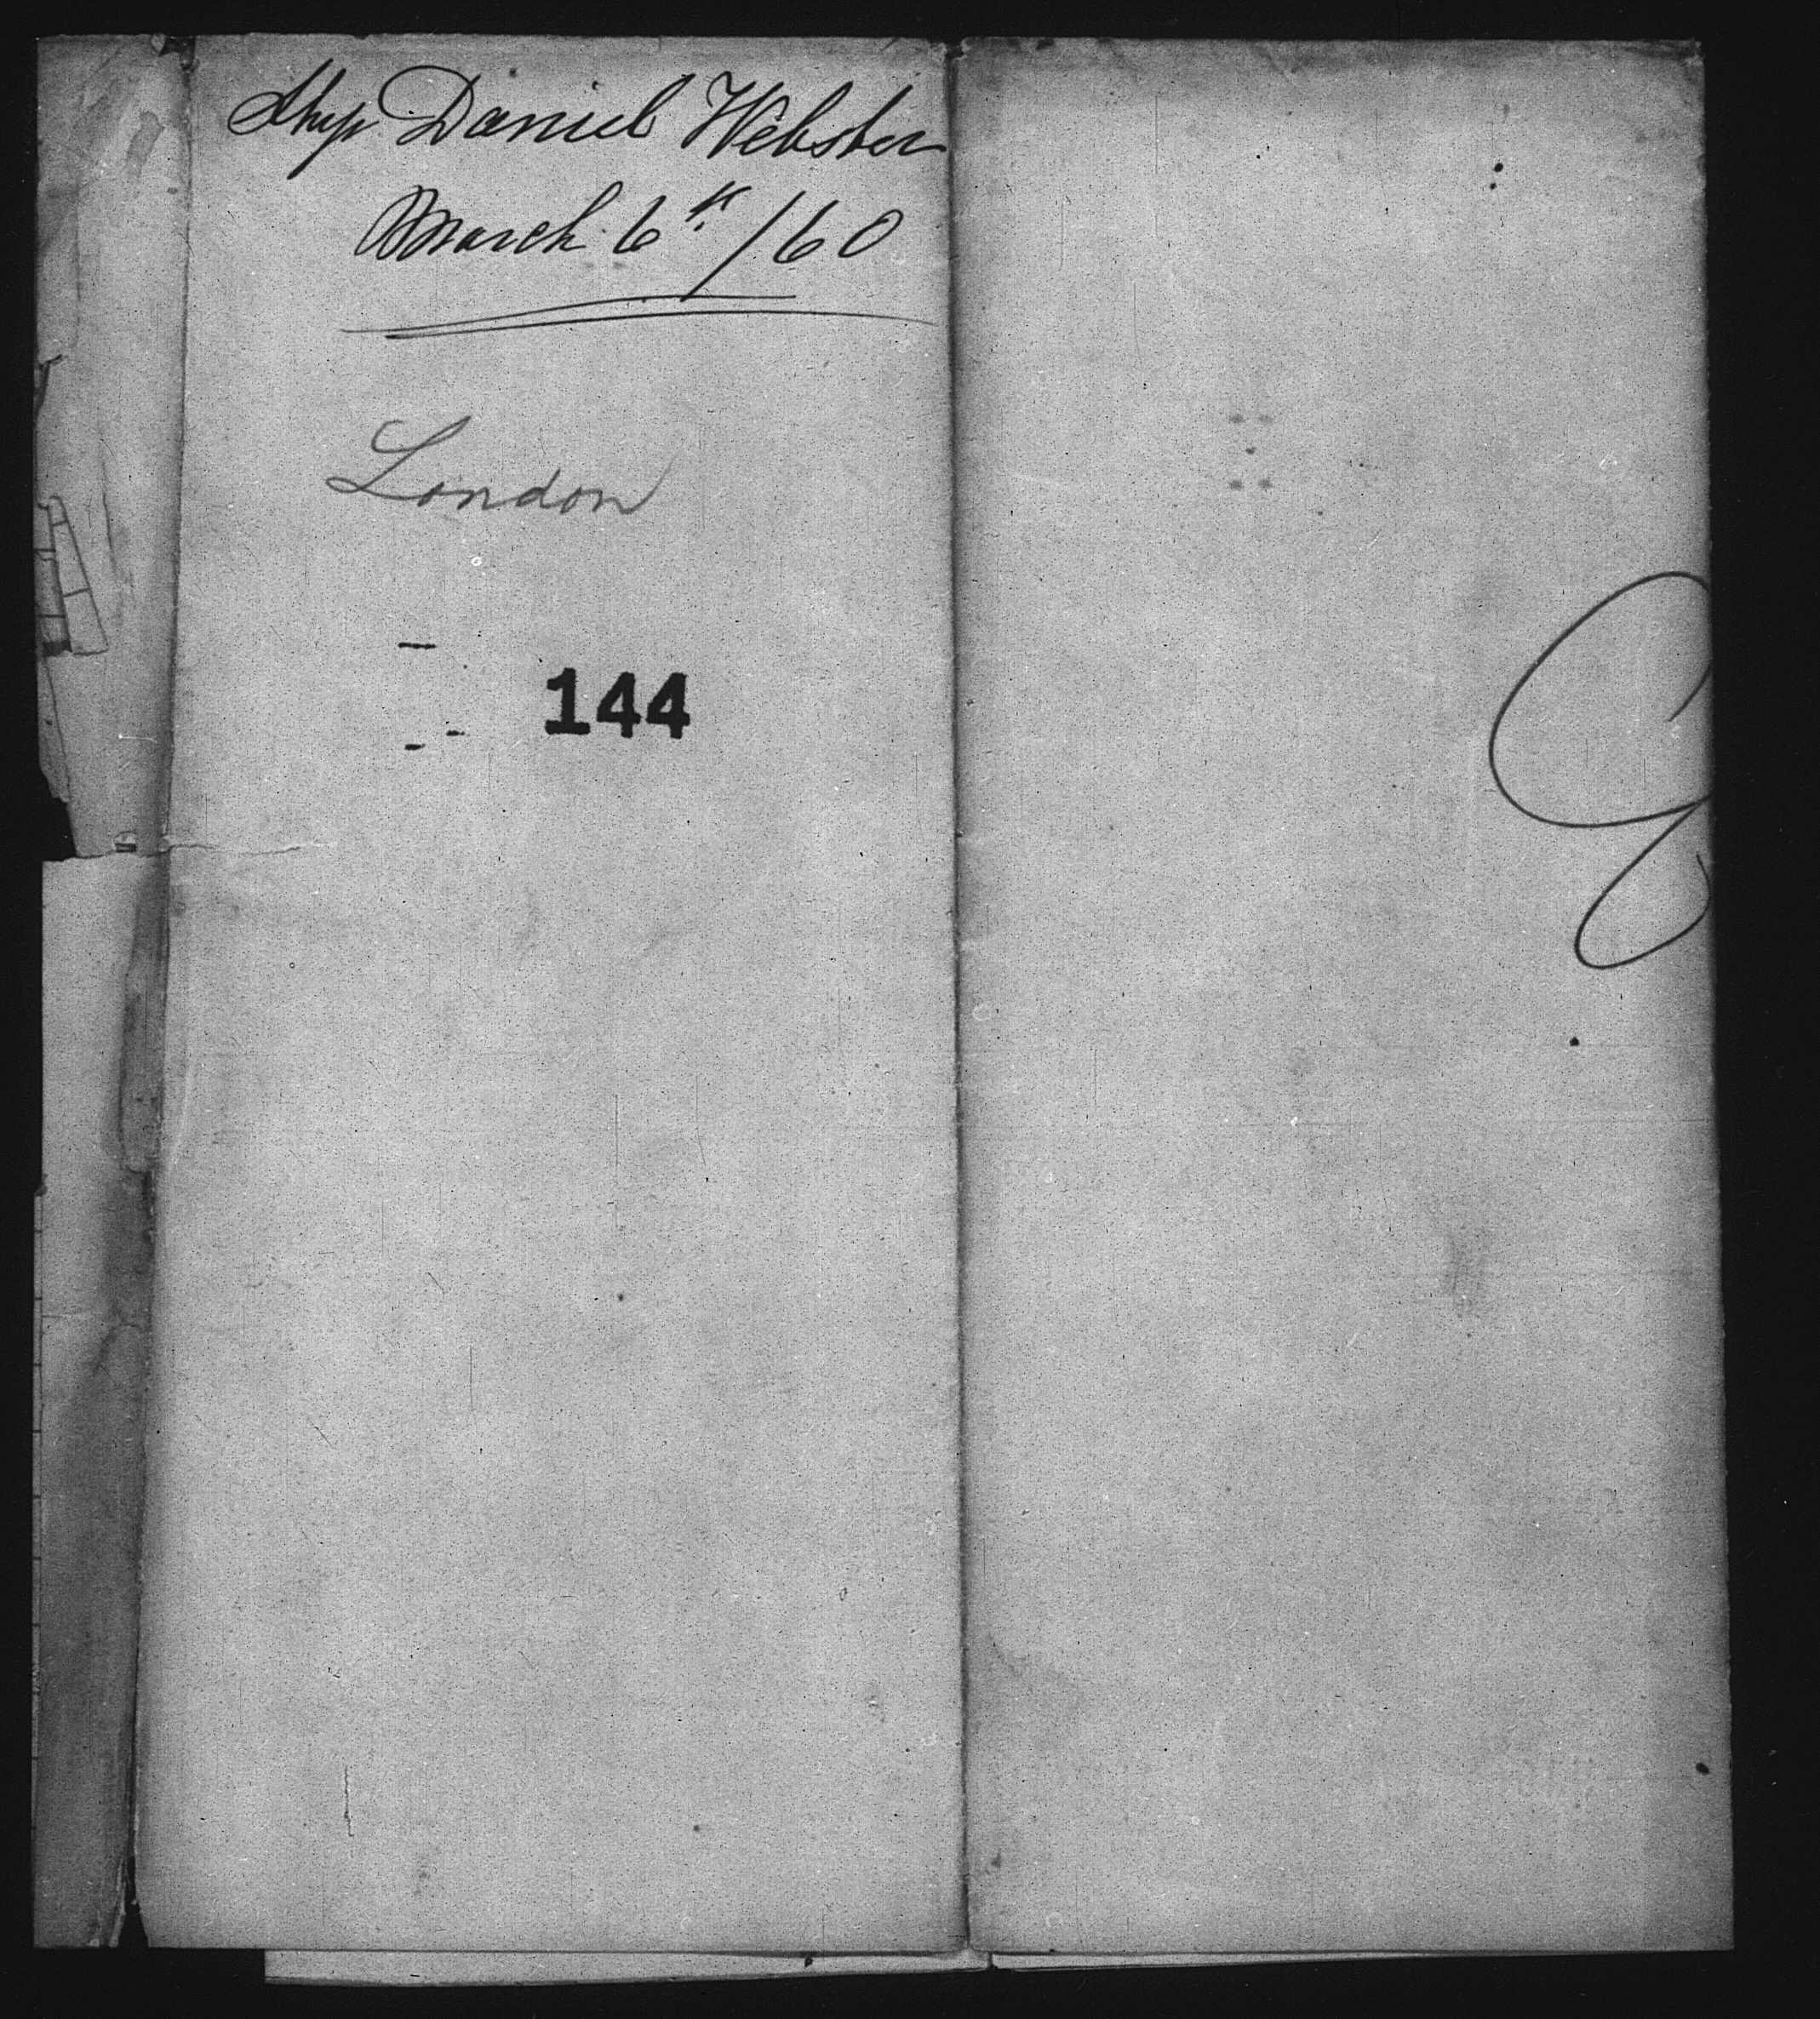 Ship Daniel Webster
March 6th/60
London
144